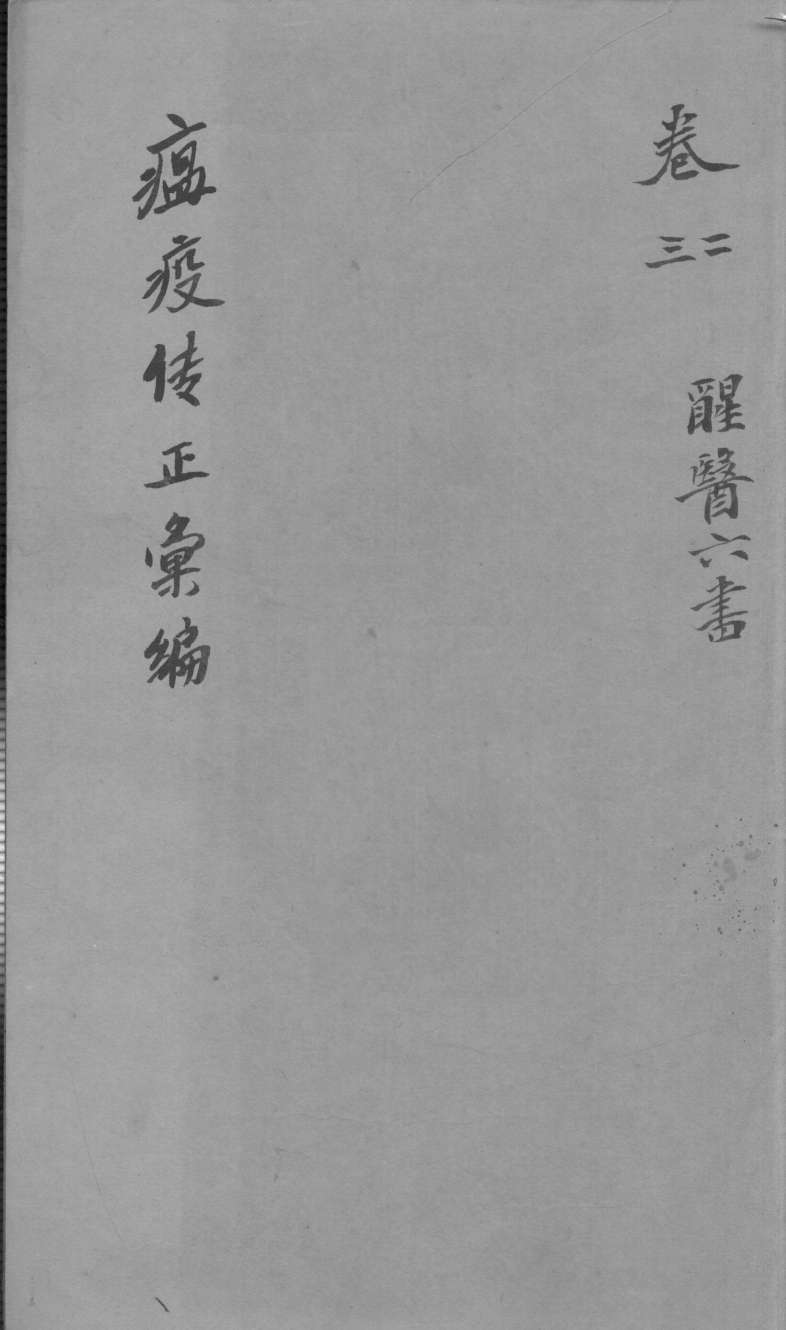 卷二三
醒醫六書
瘟疫传正彙編